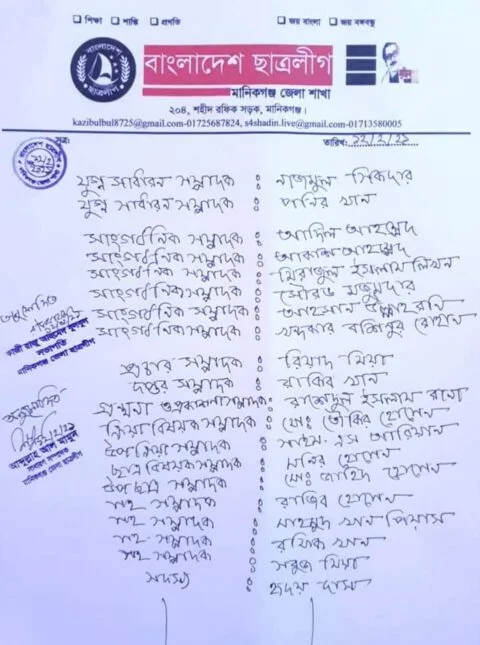 শিক্ষা শান্তি প্রগতি জয় বাংলা জয় বঙ্গবন্ধু
বাংলাদেশ ছাত্রলীগ
বাংলাদেশ ছাত্রলীগ
মানিকগঞ্জ জেলা শাখা
২০৪, শহীদ রফিক সড়ক, মানিকগঞ্জ।
kazibulbul8725@gmail.com-01725687824, s4shadin.live@gmail.com-01713580005
সূত্র: তারিখ: ১২/২/২১
যুগ্ম সাধারন সম্পাদক : নাজমুল সিকদার
যুগ্ম সাধারন সম্পাদক : পানির খান
সাংগঠনিক সম্পাদক : আদিল আহম্মেদ
সাংগঠনিক সম্পাদক : আকাশ আহম্মেদ
সাংগঠনিক সম্পাদক : মিরাজুল ইসলাম লিখন
সাংগঠনিক সম্পাদক : সৌরভ মজুমদার
সাংগঠনিক সম্পাদক : আহসান উল্লাহ রনি
সাংগঠনিক সম্পাদক : খন্দকার রোহান
অনুমোদিত
কাজী রাজু আহমেদ বুলবুল
সভাপতি
মানিকগঞ্জ জেলা ছাত্রলীগ
প্রচার সম্পাদক : রিয়াদ মিয়া
দপ্তর সম্পাদক : রাকিব খান
গ্রন্থনা ও প্রকাশনা সম্পাদক : রাশেদুল ইসলাম রানা
ক্রিয়া বিষয়ক সম্পাদক : মোঃ তৌকির হোসেন
উপ ক্রিয়া সম্পাদক : এস আরিয়ান
ছাত্র বিষয়ক সম্পাদক : মনির হোসেন
উপ ছাত্র সম্পাদক : মোঃ জাহিদ হোসেন
সহ সম্পাদক : রাজিব হোসেন
সহ সম্পাদক : মাহমুদ খান পিয়াস
সহ সম্পাদক : রফিক খান
সহ সম্পাদক : সবুজ মিয়া
সদস্য : হৃদয় দাস
অনুমোদিত
আব্দুল্লাহ আল মামুন
সাধারণ সম্পাদক
মানিকগঞ্জ জেলা ছাত্রলীগ